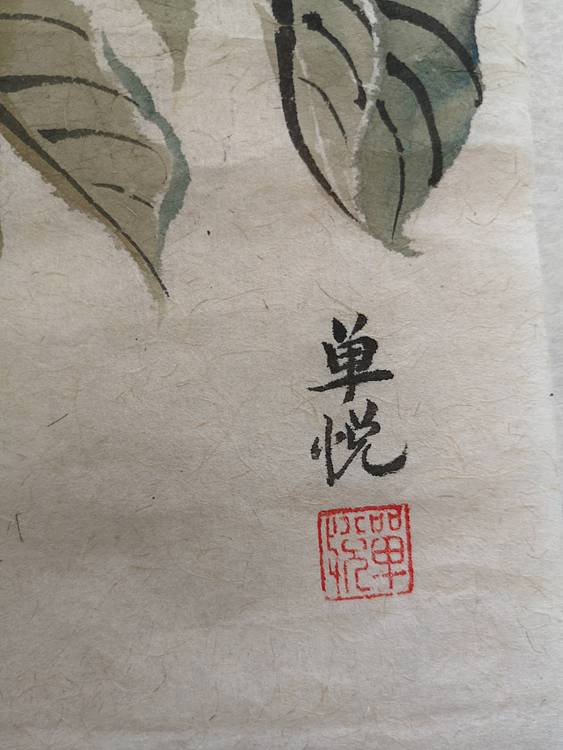 单悦
單悦